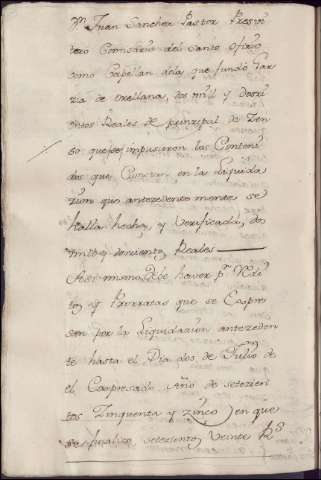 Dn Juan Sanchez Pastor Presvi
tero Comisario del Santo Ofizio
como Capellan dela que fundo Gar
zia de orellana, dos mill y Dozci
entos Reales de principal de Zen
so que se impusieron las Conteni
das que Constan en la liquida
zion que antezedentemente se
halla hecha, y Verificada, dos
mill y dozientos Reales
Asi mismo ha de haver pr Redi
tos y Prorratas que se Expre
san por la liquidazion antezeden
te hasta el Dia dos de Julio de
el Expresado año de setezien
tos Zinquenta y zinco en que
se finalizo setezientos veinte Rs